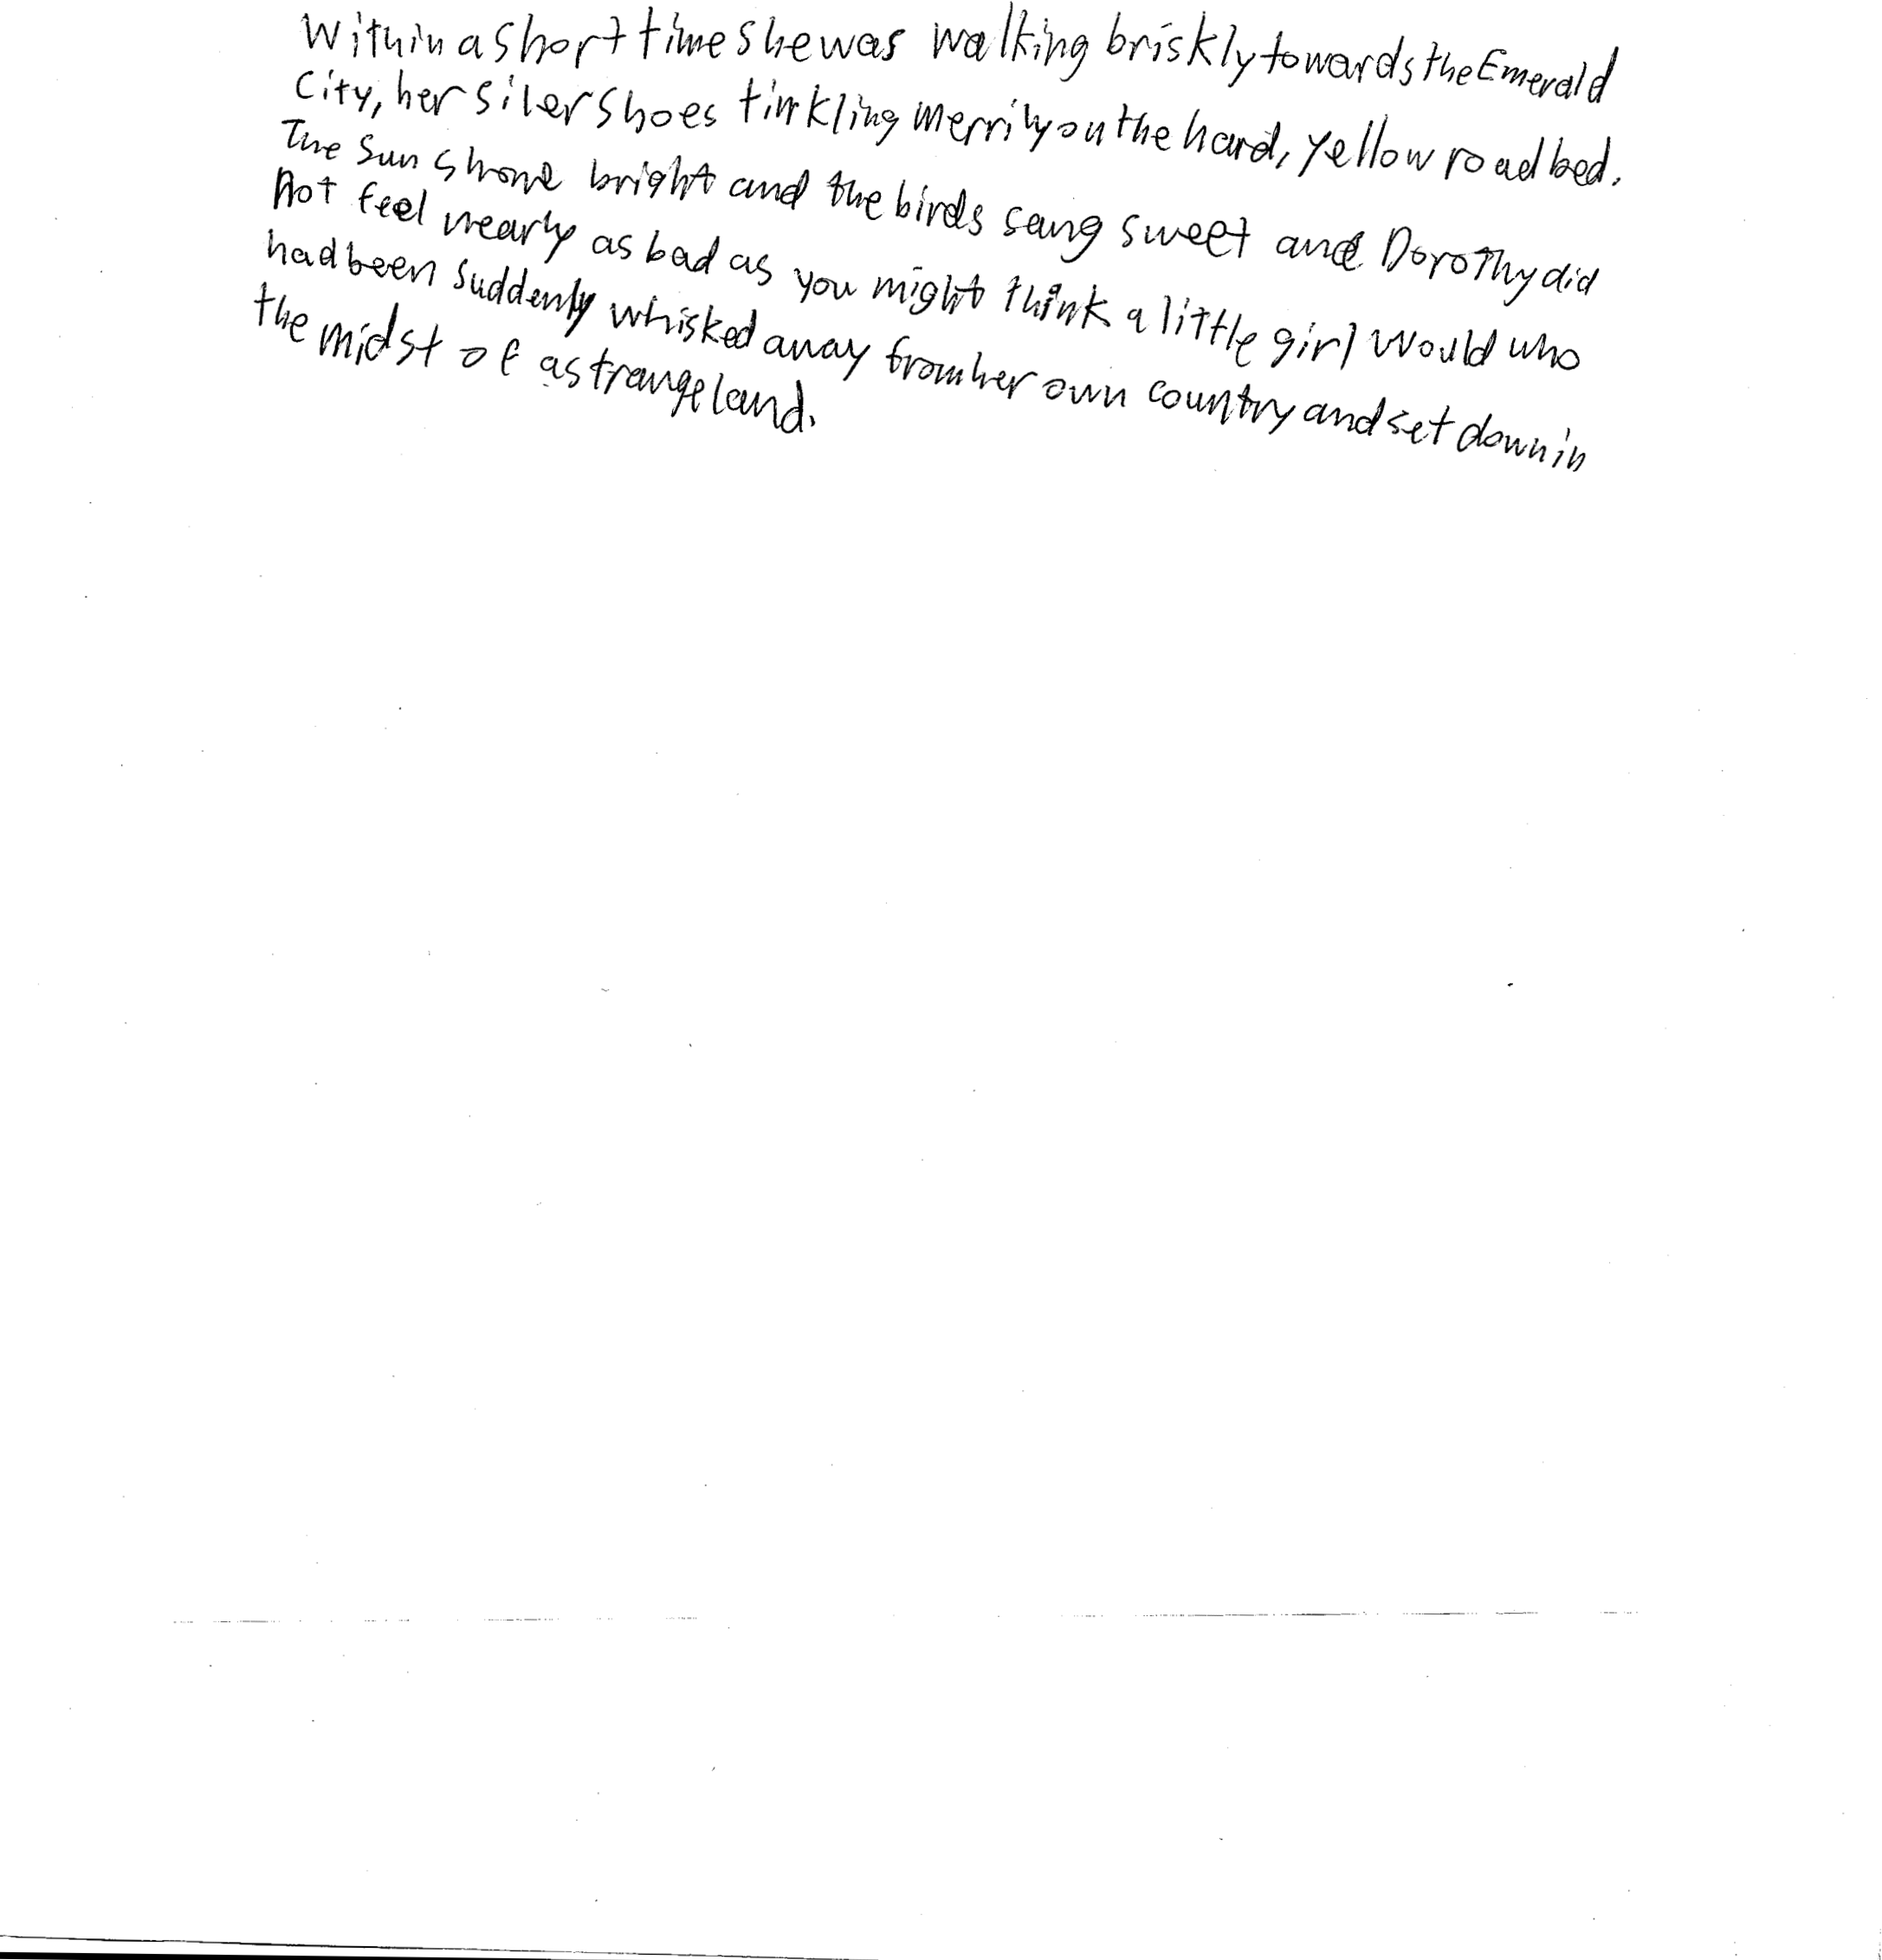 Within a short time she was walking briskly towards the Emerald
City, her silver shoes tinkling merrily on the hard, yellow road bed.
The sun shone bright and the birds sang sweet and Dorothy did
not feel nearly as bad as you might think a little girl would who
had been suddenly whisked away from her own country and set down in
the midst of a strange land.